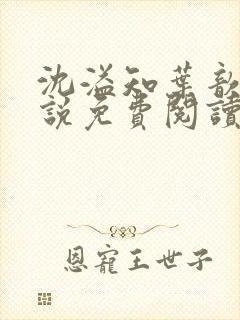 沈溢知葉歆
說免費閱讀
恩寵王世子